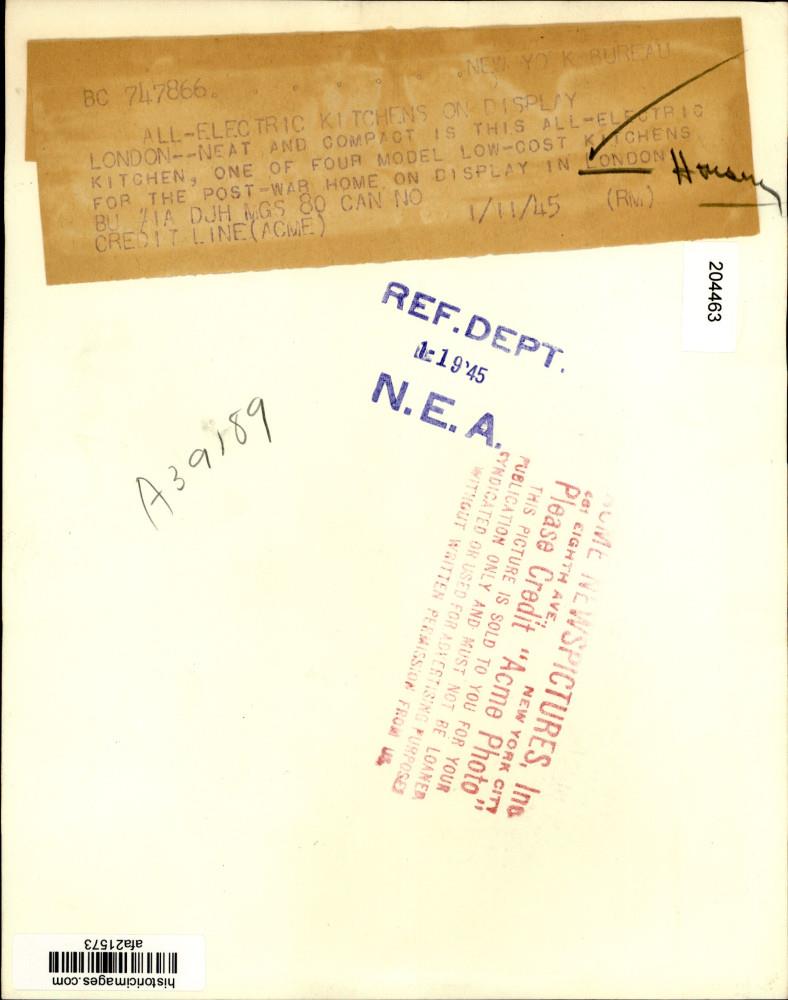 BC 747866. . . . . . .NEW YO K BUREAU
ALL-ELECTRIC KITCHENS ON DISPLAY
LONDON--NEAT AND COMPACT IS THIS ALL-ELECTRIC
KITCHEN, ONE OF FOUR MODEL LOW-COST KITCHENS
FOR THE POST-WAR HOME ON DISPLAY IN LONDON
BU DJH MGS 80 CAN NO 1/11/45 (RM)
CREDIT LINE(ACME)
204463
REF.DEPT.
1-19'45
N.E.A.
A39189
ACME NEWSPICTURES, Inc
461 EIGHTH AVE., NEW YORK CITY
Please Credit "Acme Photo"
THIS PICTURE IS SOLD TO YOU FOR YOUR
PUBLICATION ONLY AND MUST NOT BE LOANED
SYNDICATED OR USED FOR ADVERTISING PURPOSES
WITHOUT WRITTEN PERMISSION FROM US.
historicimages.com
afa21573